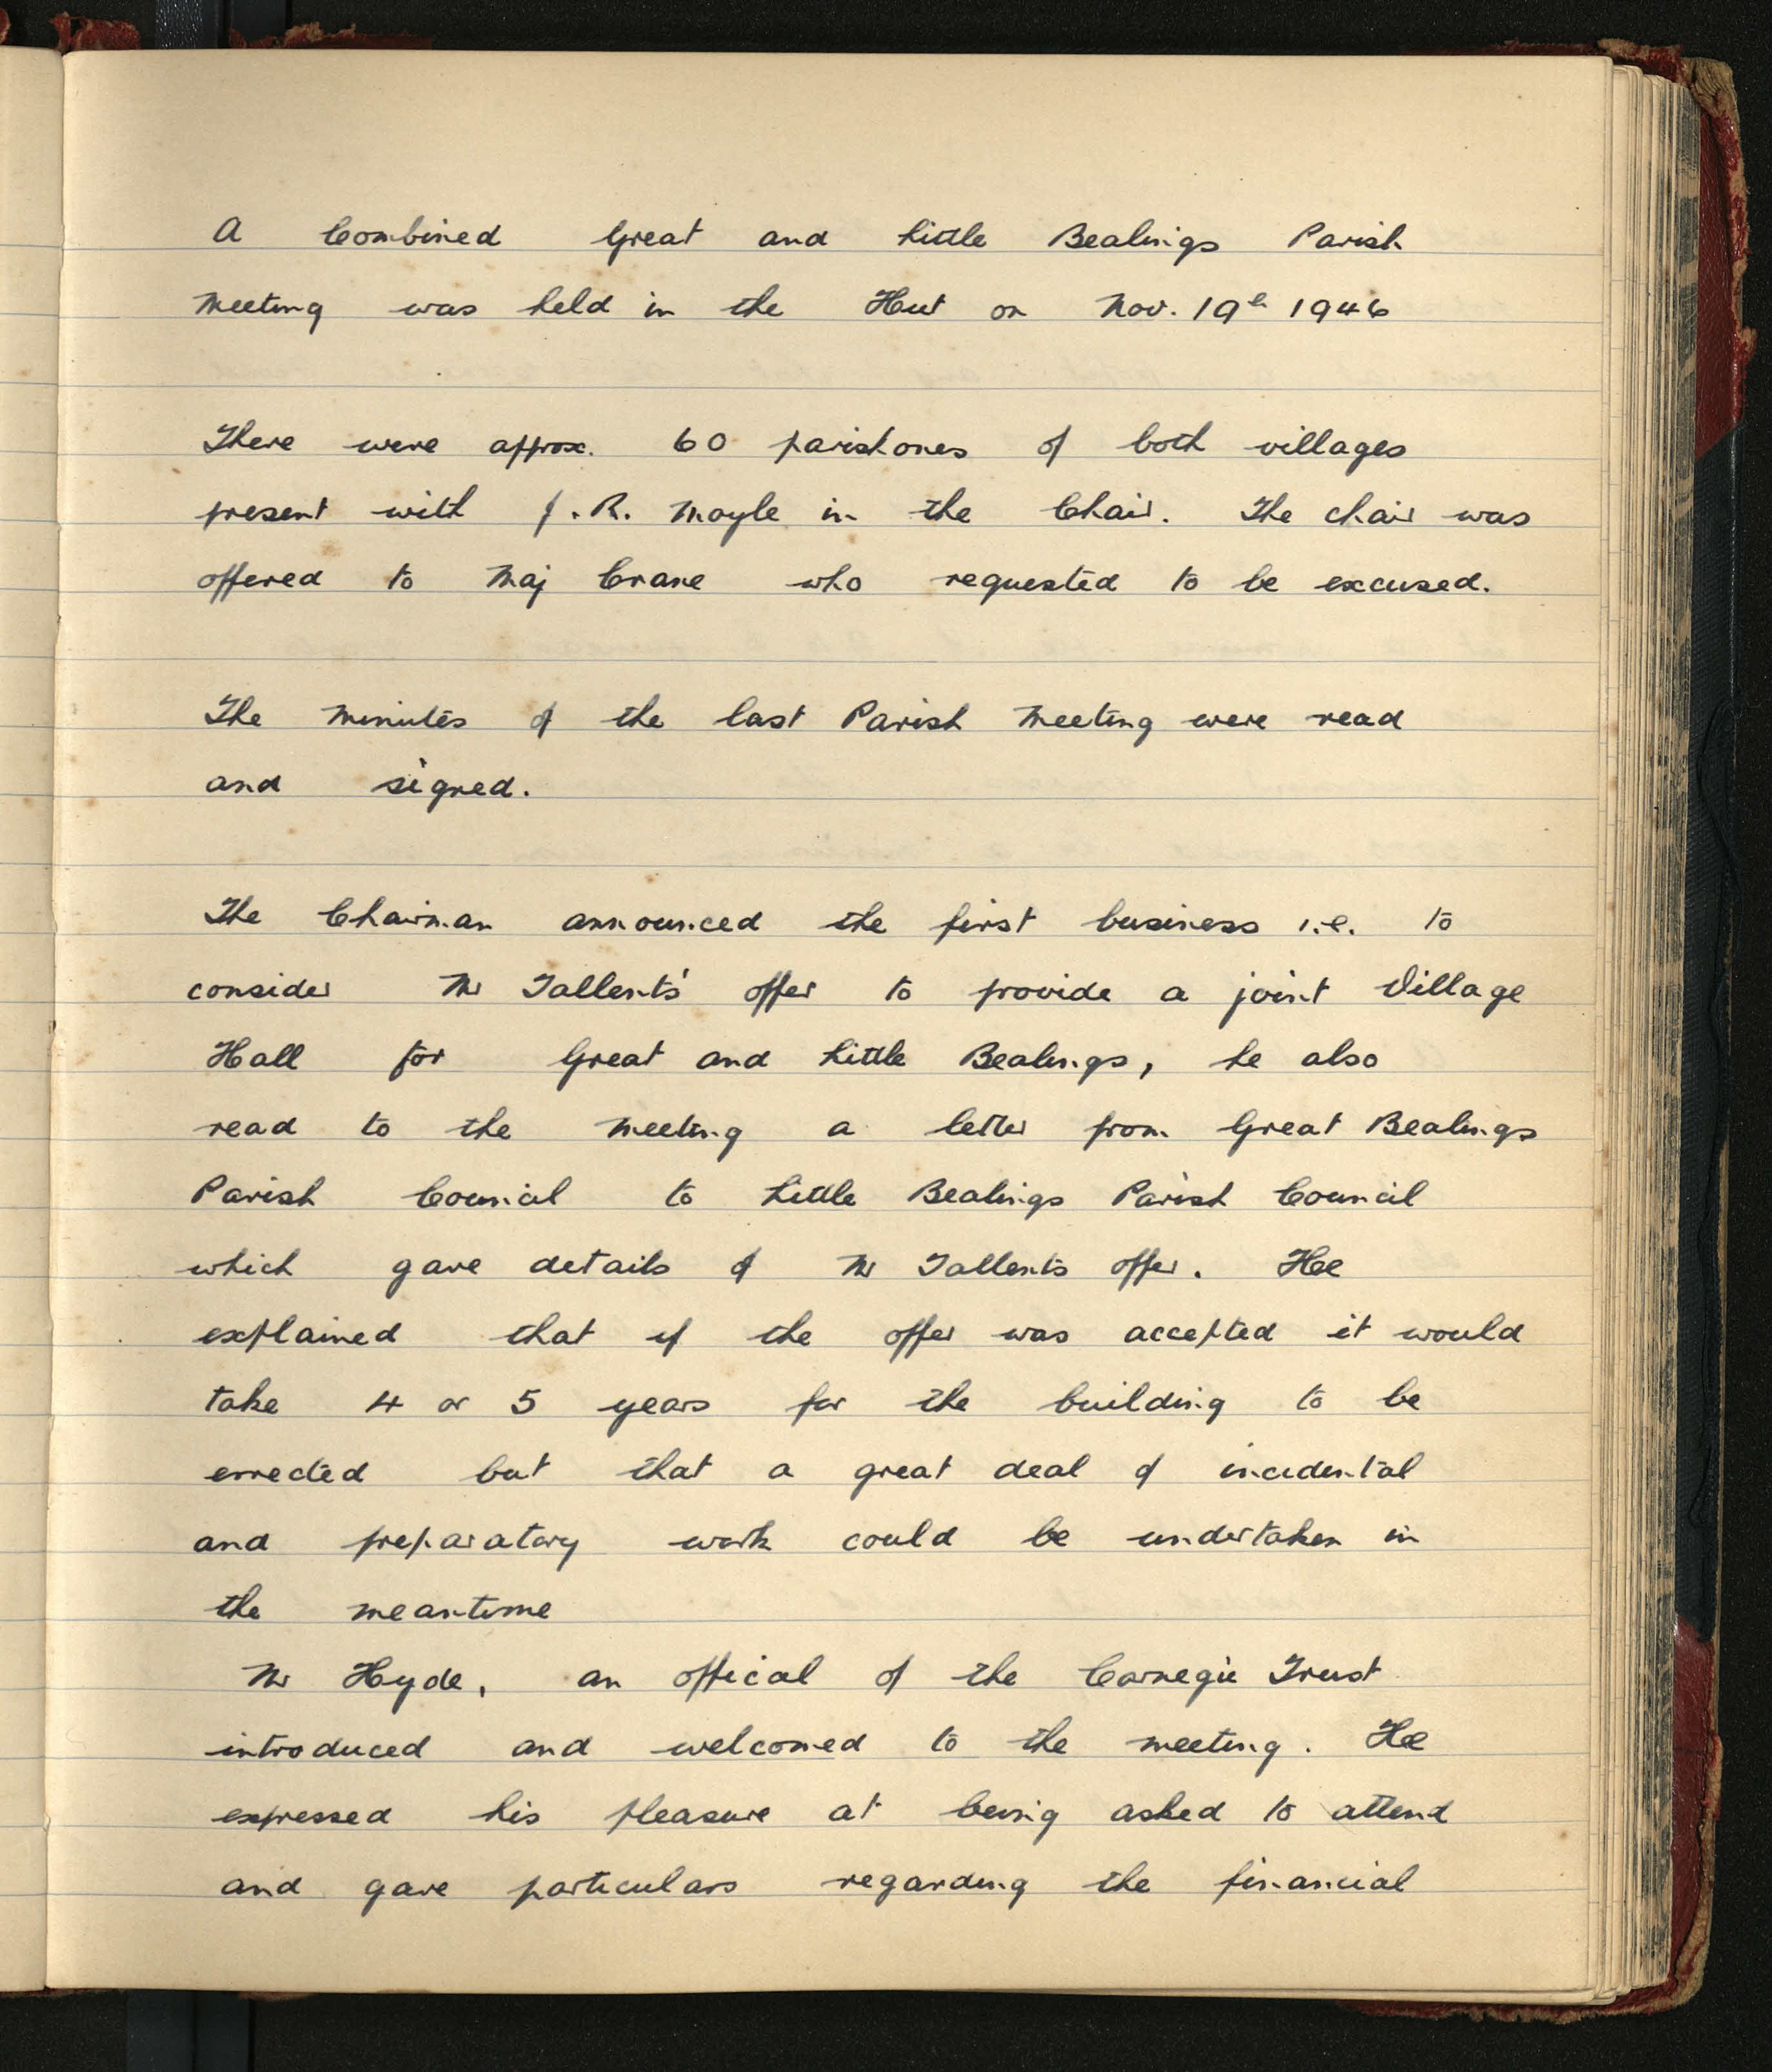 A Combined Great and Little Bealings Parish
Meeting was held in the Hut on Nov. 19th 1946
There were approx. 60 parishones of both villages
present with J. R. Moyle in the Chair. The chair was
offered to Maj Crane who requested to be excused.
The Minutes of the last Parish Meeting were read
and signed.
The Chairman announced the first business i.e. to
consider Mr Tallents' offer to provide a joint Village
Hall for Great and Little Bealings, he also
read to the Meeting a letter from Great Bealings
Parish Council to Little Bealings Parish Council
which gave details of Mr Tallents offer. He
explained that if the offer was accepted it would
take 4 or 5 years for the building to be
errected but that a great deal of incidental
and preparatory work could be undertaken in
the meantime
Mr Hyde, an offical of the Carnegie Trust
introduced and welcomed to the meeting. He
expressed his pleasure at being asked to attend
and gave particulars regarding the financial